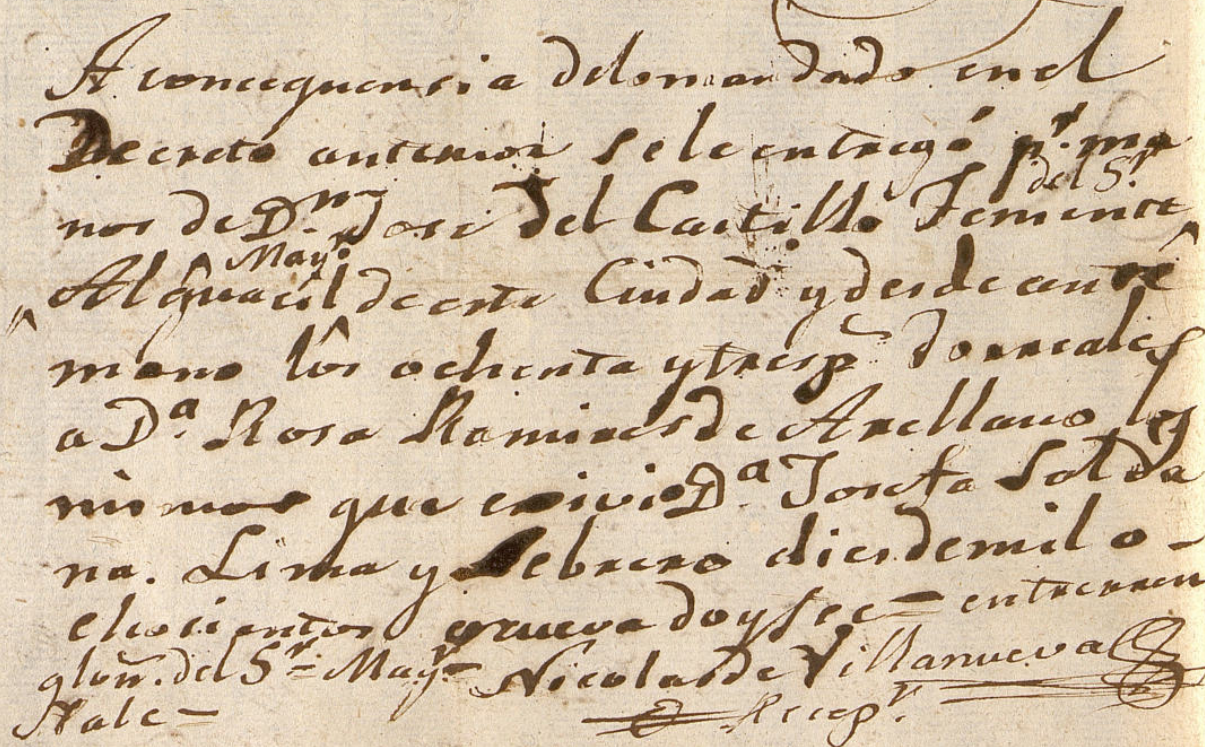 A concequensia delo mandado en el
Decreto anterior se le entregó pr. ma
nos de Dn. Jose del Castillo Teniente del Sr.
Alguacil Mayr. de esta Ciudad y desde cuya
mano los ochenta y tres ps. dos rreales
a Da. Rosa Ramires de Arellano los
mimos que exivio Da. Josefa Solda
na. Lima y Febrero dies de mil o-
chocientos y nueve doy fee = entrerren
glon. del Sr. = Mayr. = Nicolas de Villanueva
Vale = Recepr.